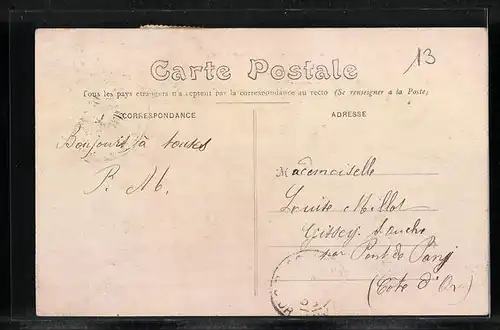 13
Carte Postale
Tous les pays étrangers n'acceptent pas la correspondance au recto (Se renseigner à la Poste)
CORRESPONDANCE
ADRESSE
Bonjour à toutes
Mademoiselle
Louise Millot
Gissey s. ouche
par Pont de Pany
(Cote d'Or)